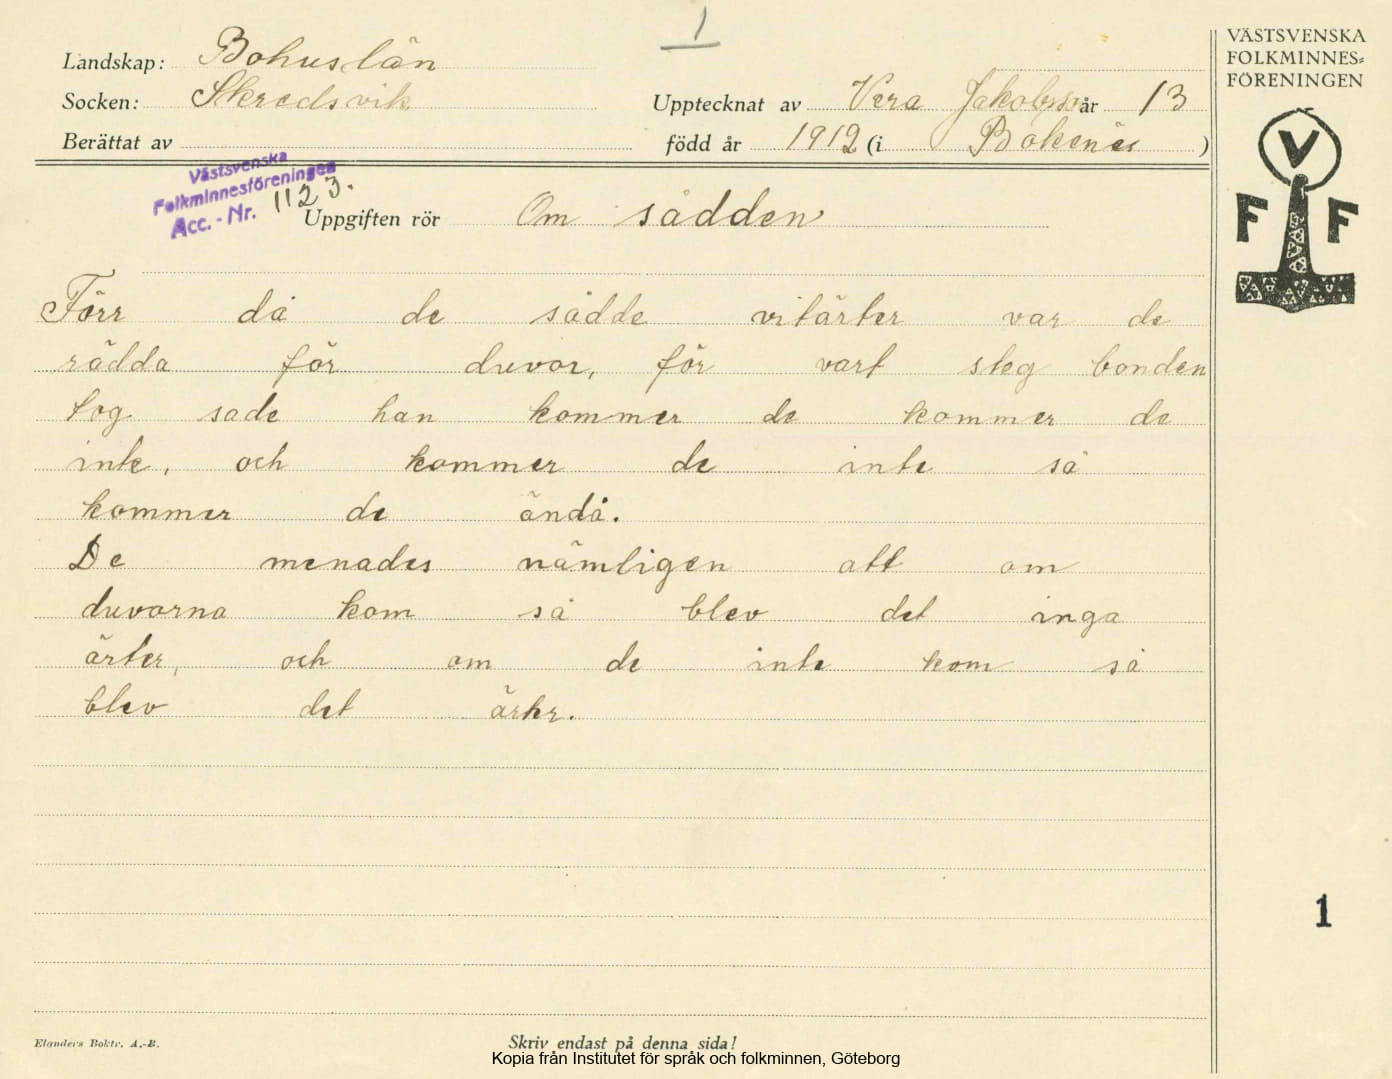 1
Landskap: Bohuslän
Socken: Skredsvik
Upptecknat av Vera Jakobsson år 13
Berättat av
född år 1912 (i Bokenäs )
VÄSTSVENSKA
FOLKMINNES=
FÖRENINGEN
V
F F
Västsvenska
Folkminnesföreningen
Acc. - Nr. 1123.
Uppgiften rör Om sådden
Förr då de sådde vitärter var de
rädda för duvor, för vart steg bonden
tog sade han kommer de kommer de
inte, och kommer de inte så
kommer de ändå.
De menades nämligen att om
duvorna kom så blev det inga
ärter, och om de inte kom så
blev det ärter.
1
Elanders Boktr. A.-B.
Skriv endast på denna sida!
Kopia från Institutet för språk och folkminnen, Göteborg